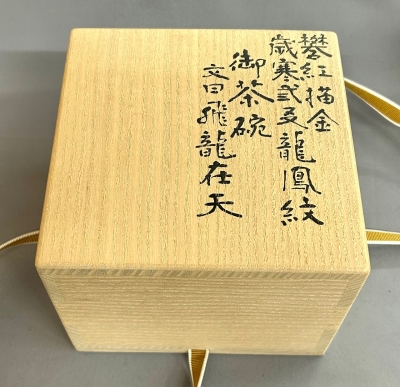 礬紅描金
歳寒弐友龍鳳紋
御茶碗
文曰飛龍在天